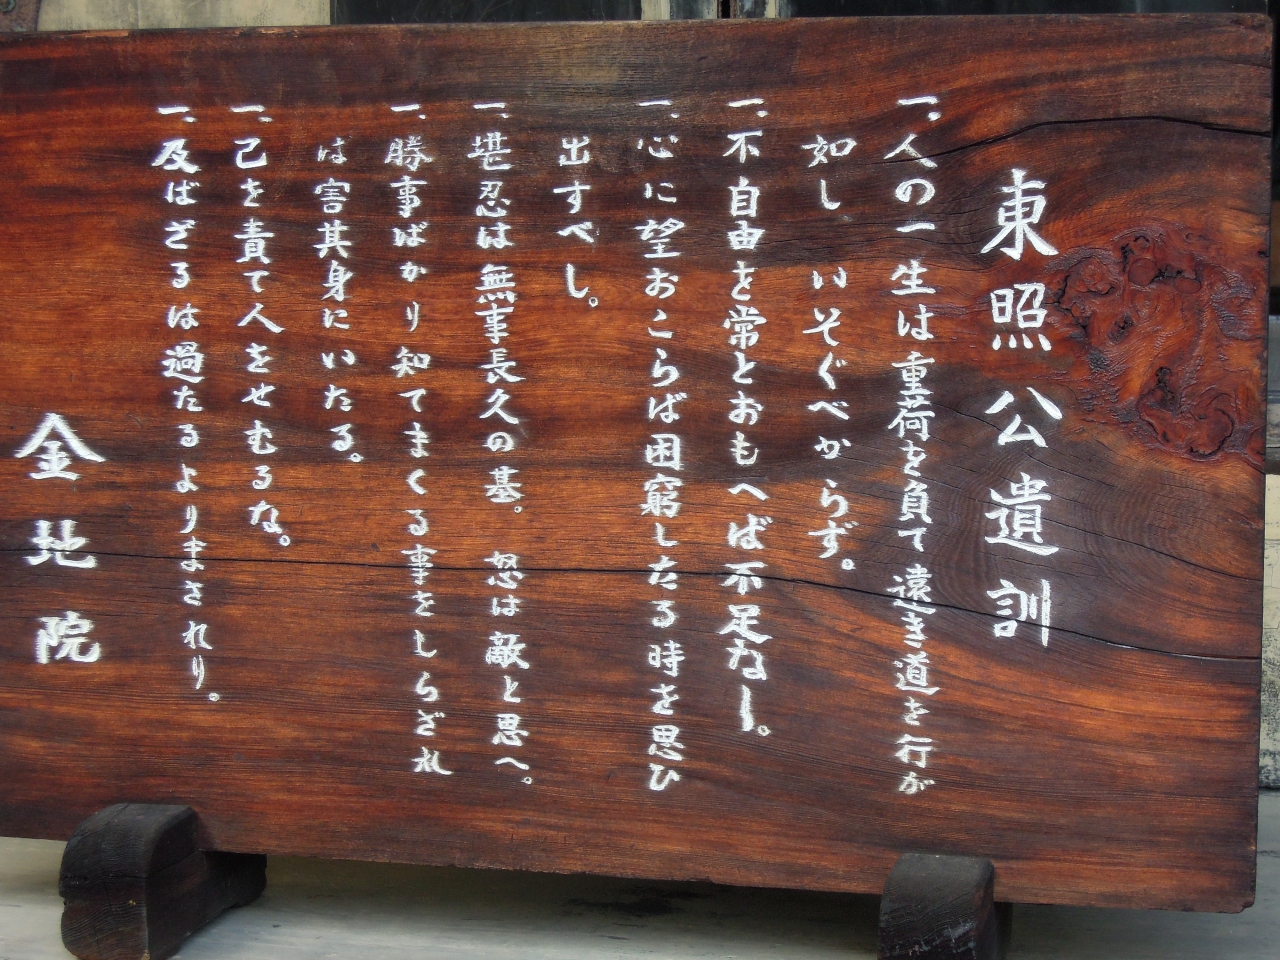 東照公遺訓
一、人の一生は重荷を負て遠き道を行が
如し いそぐべからず。
一、不自由を常とおもへば不足なし。
一、心に望おこらば困窮したる時を思ひ
出すべし。
一、堪忍は無事長久の基。 怒は敵と思へ。
一、勝事ばかり知てまくる事をしらざれ
は害其身にいたる。
一、己を責て人をせむるな。
一、及ばざるは過たるよりまされり。
金地院